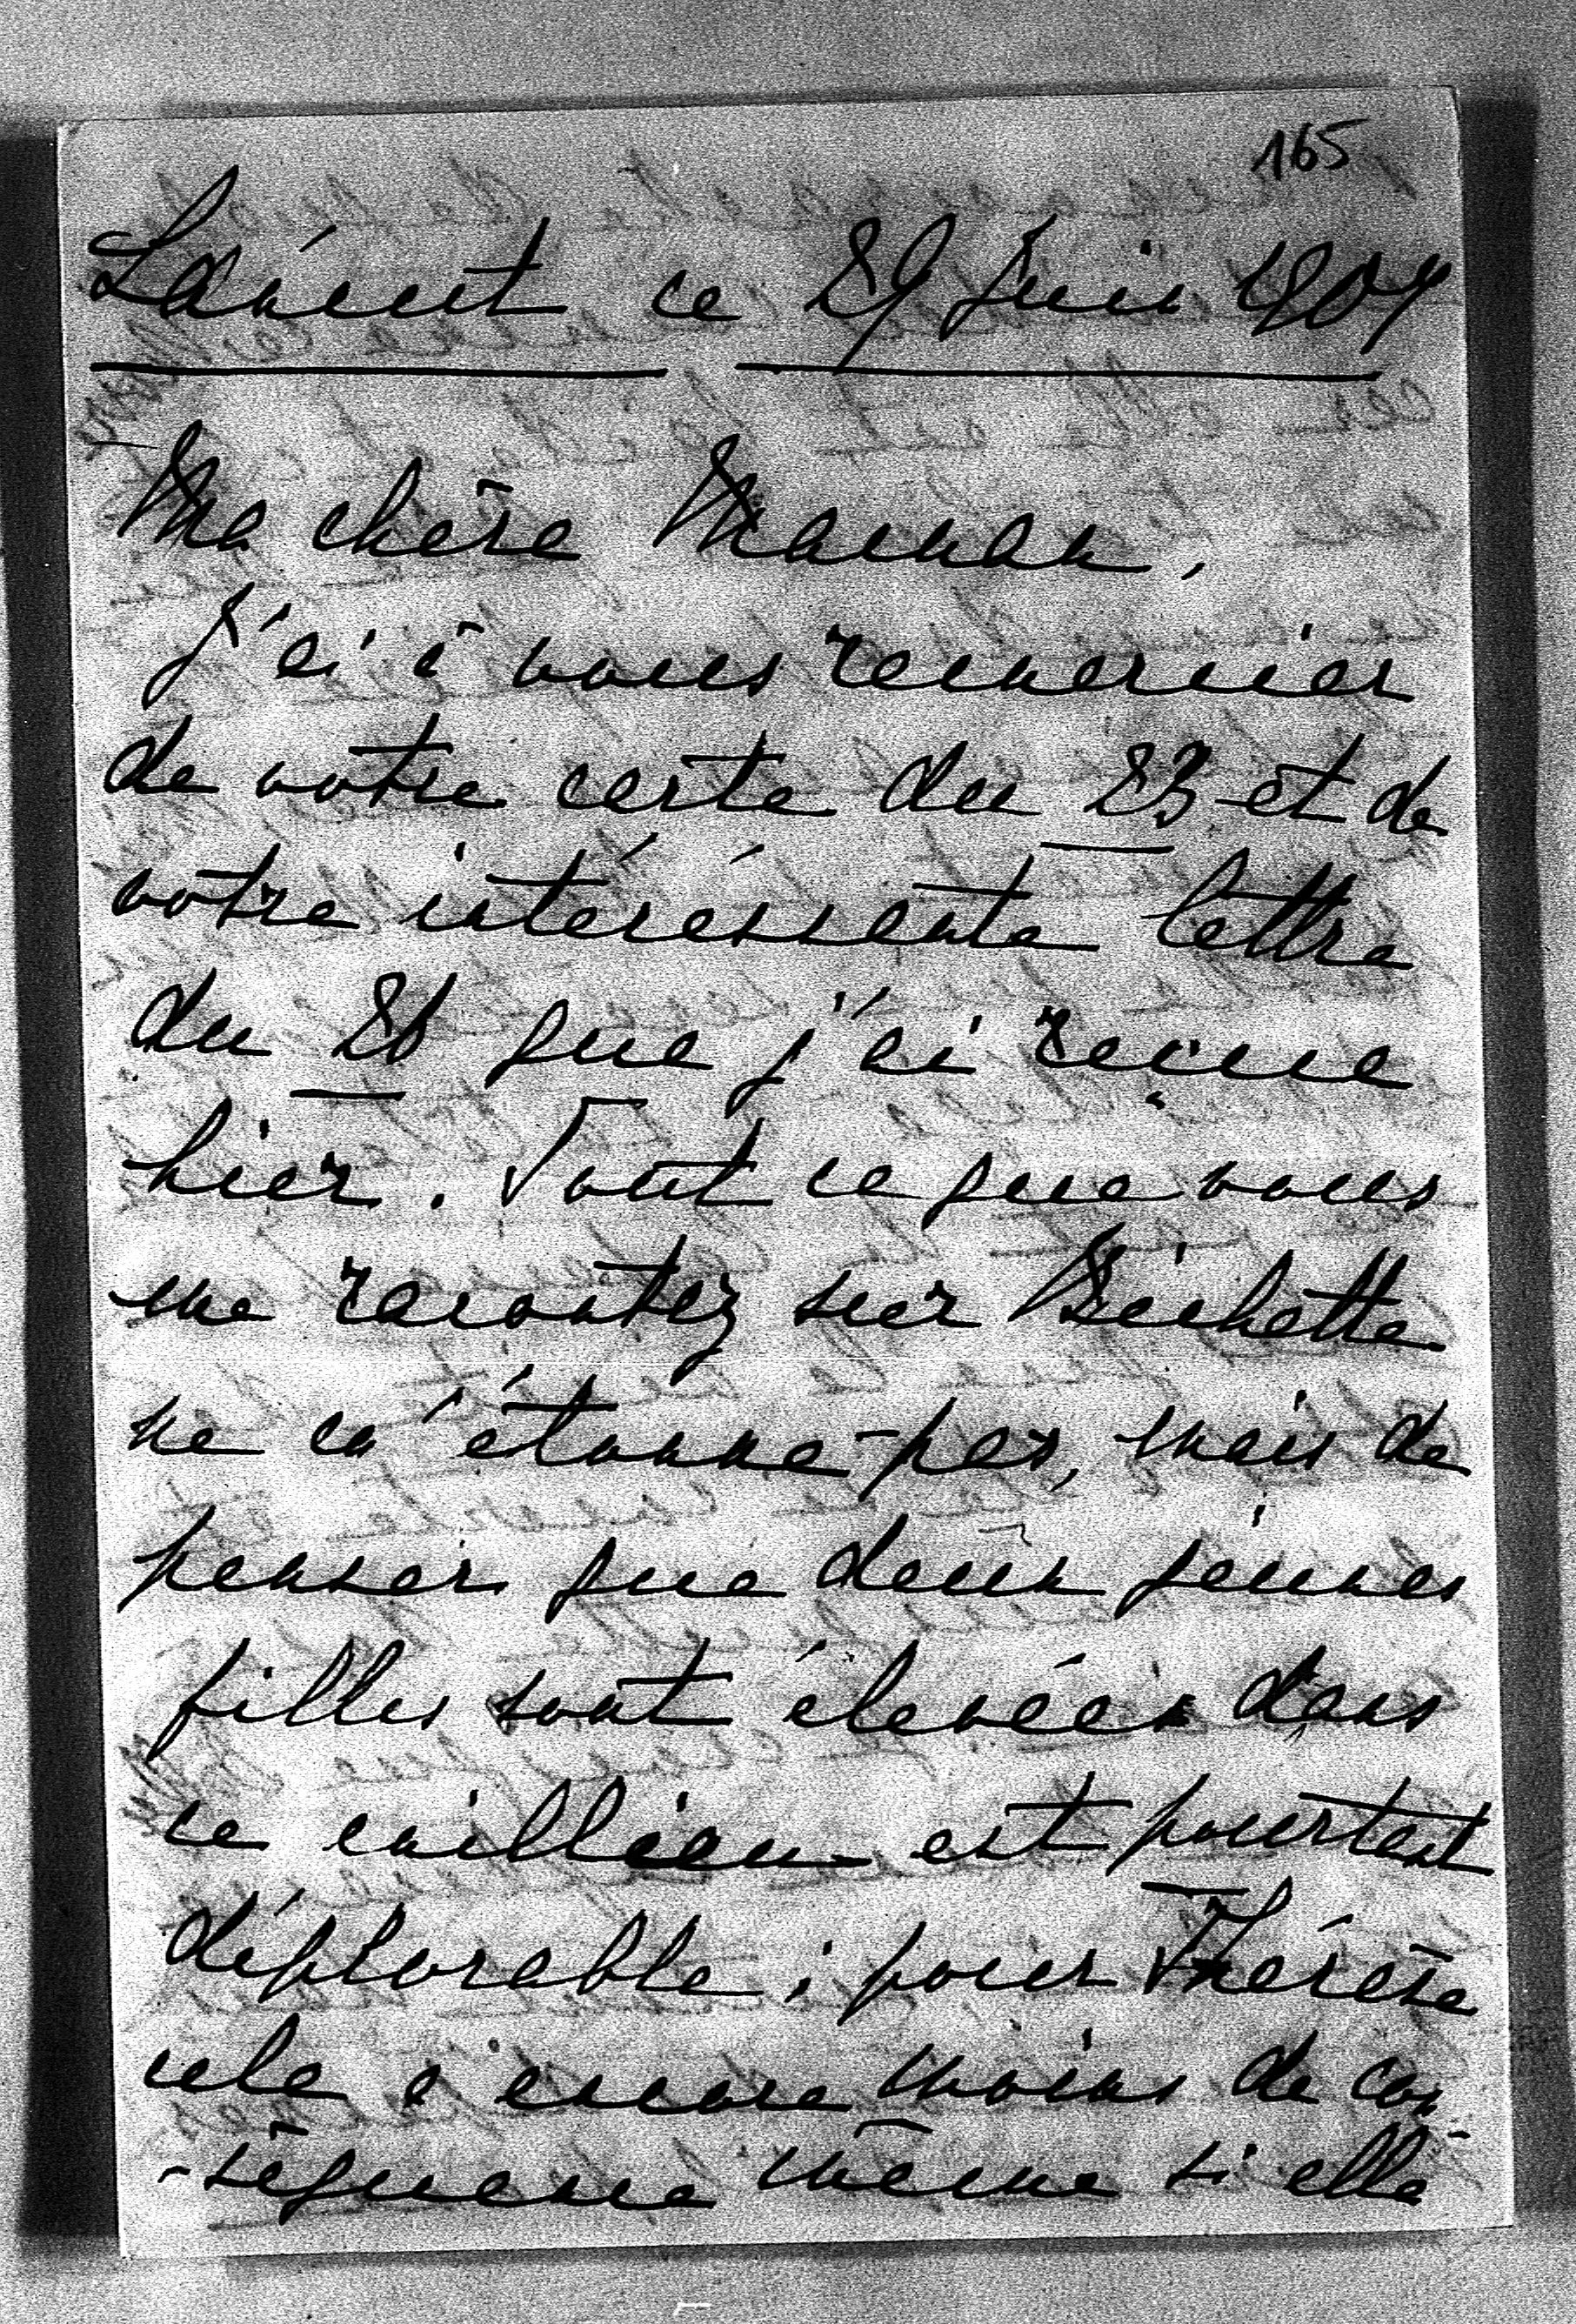 165
Lancut ce 29 Juin 1907
Ma chère Maman,
J'ai à vous remercier
de votre carte du 23 et de
votre intéréssante lettre
du 26 que j'ai reçue
hier. Tout ce que vous
me racontez sur Bichette
ne m'étonne pas, mais de
penser que deux jeunes
filles sont élevées dans
ce millieu est pourtant
déplorable ; pour Thérèse
cela a encore moins de con
-séquence même si elle